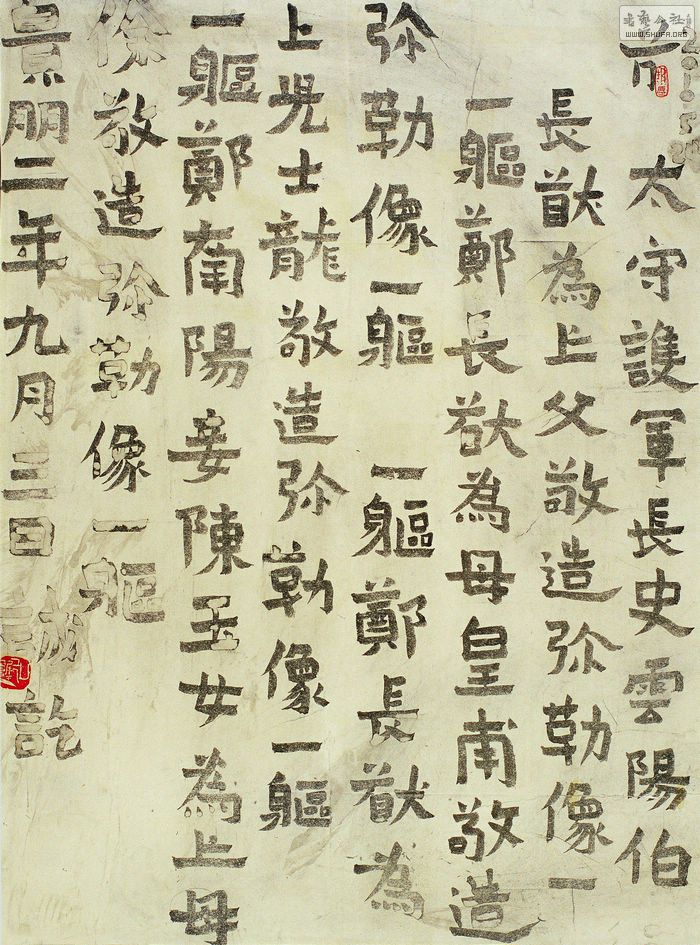 前 太守護軍長史雲陽伯
長猷為亡父敬造弥勒像一
一軀鄭長猷為母皇甫敬造
弥勒像一軀 一軀鄭長猷為
亡兒士龍敬造弥勒像一軀
一軀鄭南陽妾陳玉女為亡母
徐敬造弥勒像一軀
景明二年九月三日誡訖
书艺公社
WWW.SHUFA.ORG